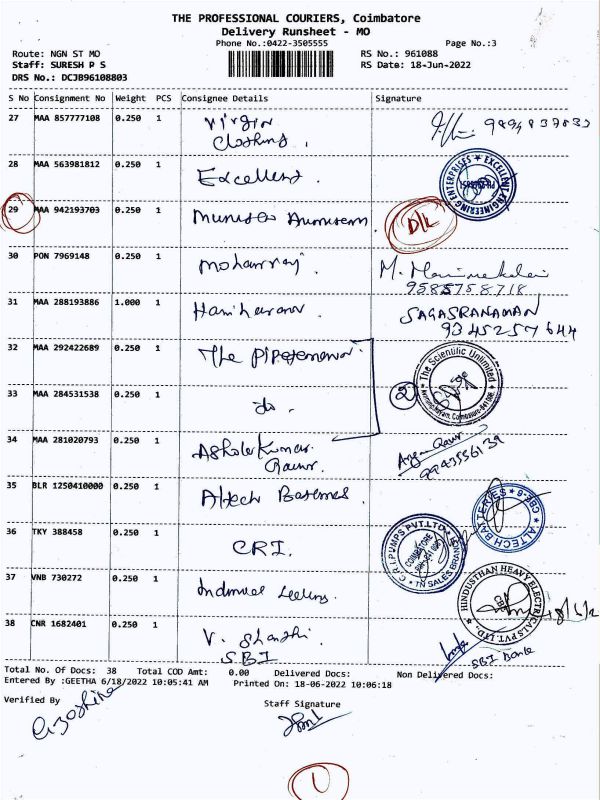 THE PROFESSIONAL COURIERS, Coimbatore
Delivery Runsheet - MO
Phone No.:0422-3505555 Page No.:3
Route: NGN ST MO RS No.: 961088
Staff: SURESH P S RS Date: 18-Jun-2022
DRS No.: DCJB96108803
S No Consignment No Weight PCS Consignee Details Signature
27 MAA 857777108 0.250 1 Virgin
Clothing.
28 MAA 563981812 0.250 1 Excellent. EXCELLENT ENGINEERING ENTERPRISES
29 MAA 942193703 0.250 1 D/L
30 PON 7969148 0.250 1 Mohanraj. M. Manimekalai
9585758718
31 MAA 288193886 1.000 1 Hariharan SAGASRANAMAN
9345257644
32 MAA 292422689 0.250 1 The The Scientific Unlimited
33 MAA 284531538 0.250 1 do. 2
34 MAA 281020793 0.250 1 Ashok Kumar
9943556139
35 BLR 1250410000 0.250 1 Altech Batteries. ALTECH BATTERIES CBE-6
36 TKY 388458 0.250 1 CRI. C.R.I.PUMPS PVT.LTD COIMBATORE TN SALES BRANCH
37 VNB 730272 0.250 1 HINDUSTHAN HEAVY ELECTRICALS PVT. LTD.
38 CNR 1682401 0.250 1 V. Shanthi
SBI SBI Bank
Total No. Of Docs: 38 Total COD Amt: 0.00 Delivered Docs: Non Delivered Docs:
Entered By :GEETHA 6/18/2022 10:05:41 AM Printed On: 18-06-2022 10:06:18
Verified By Staff Signature
1